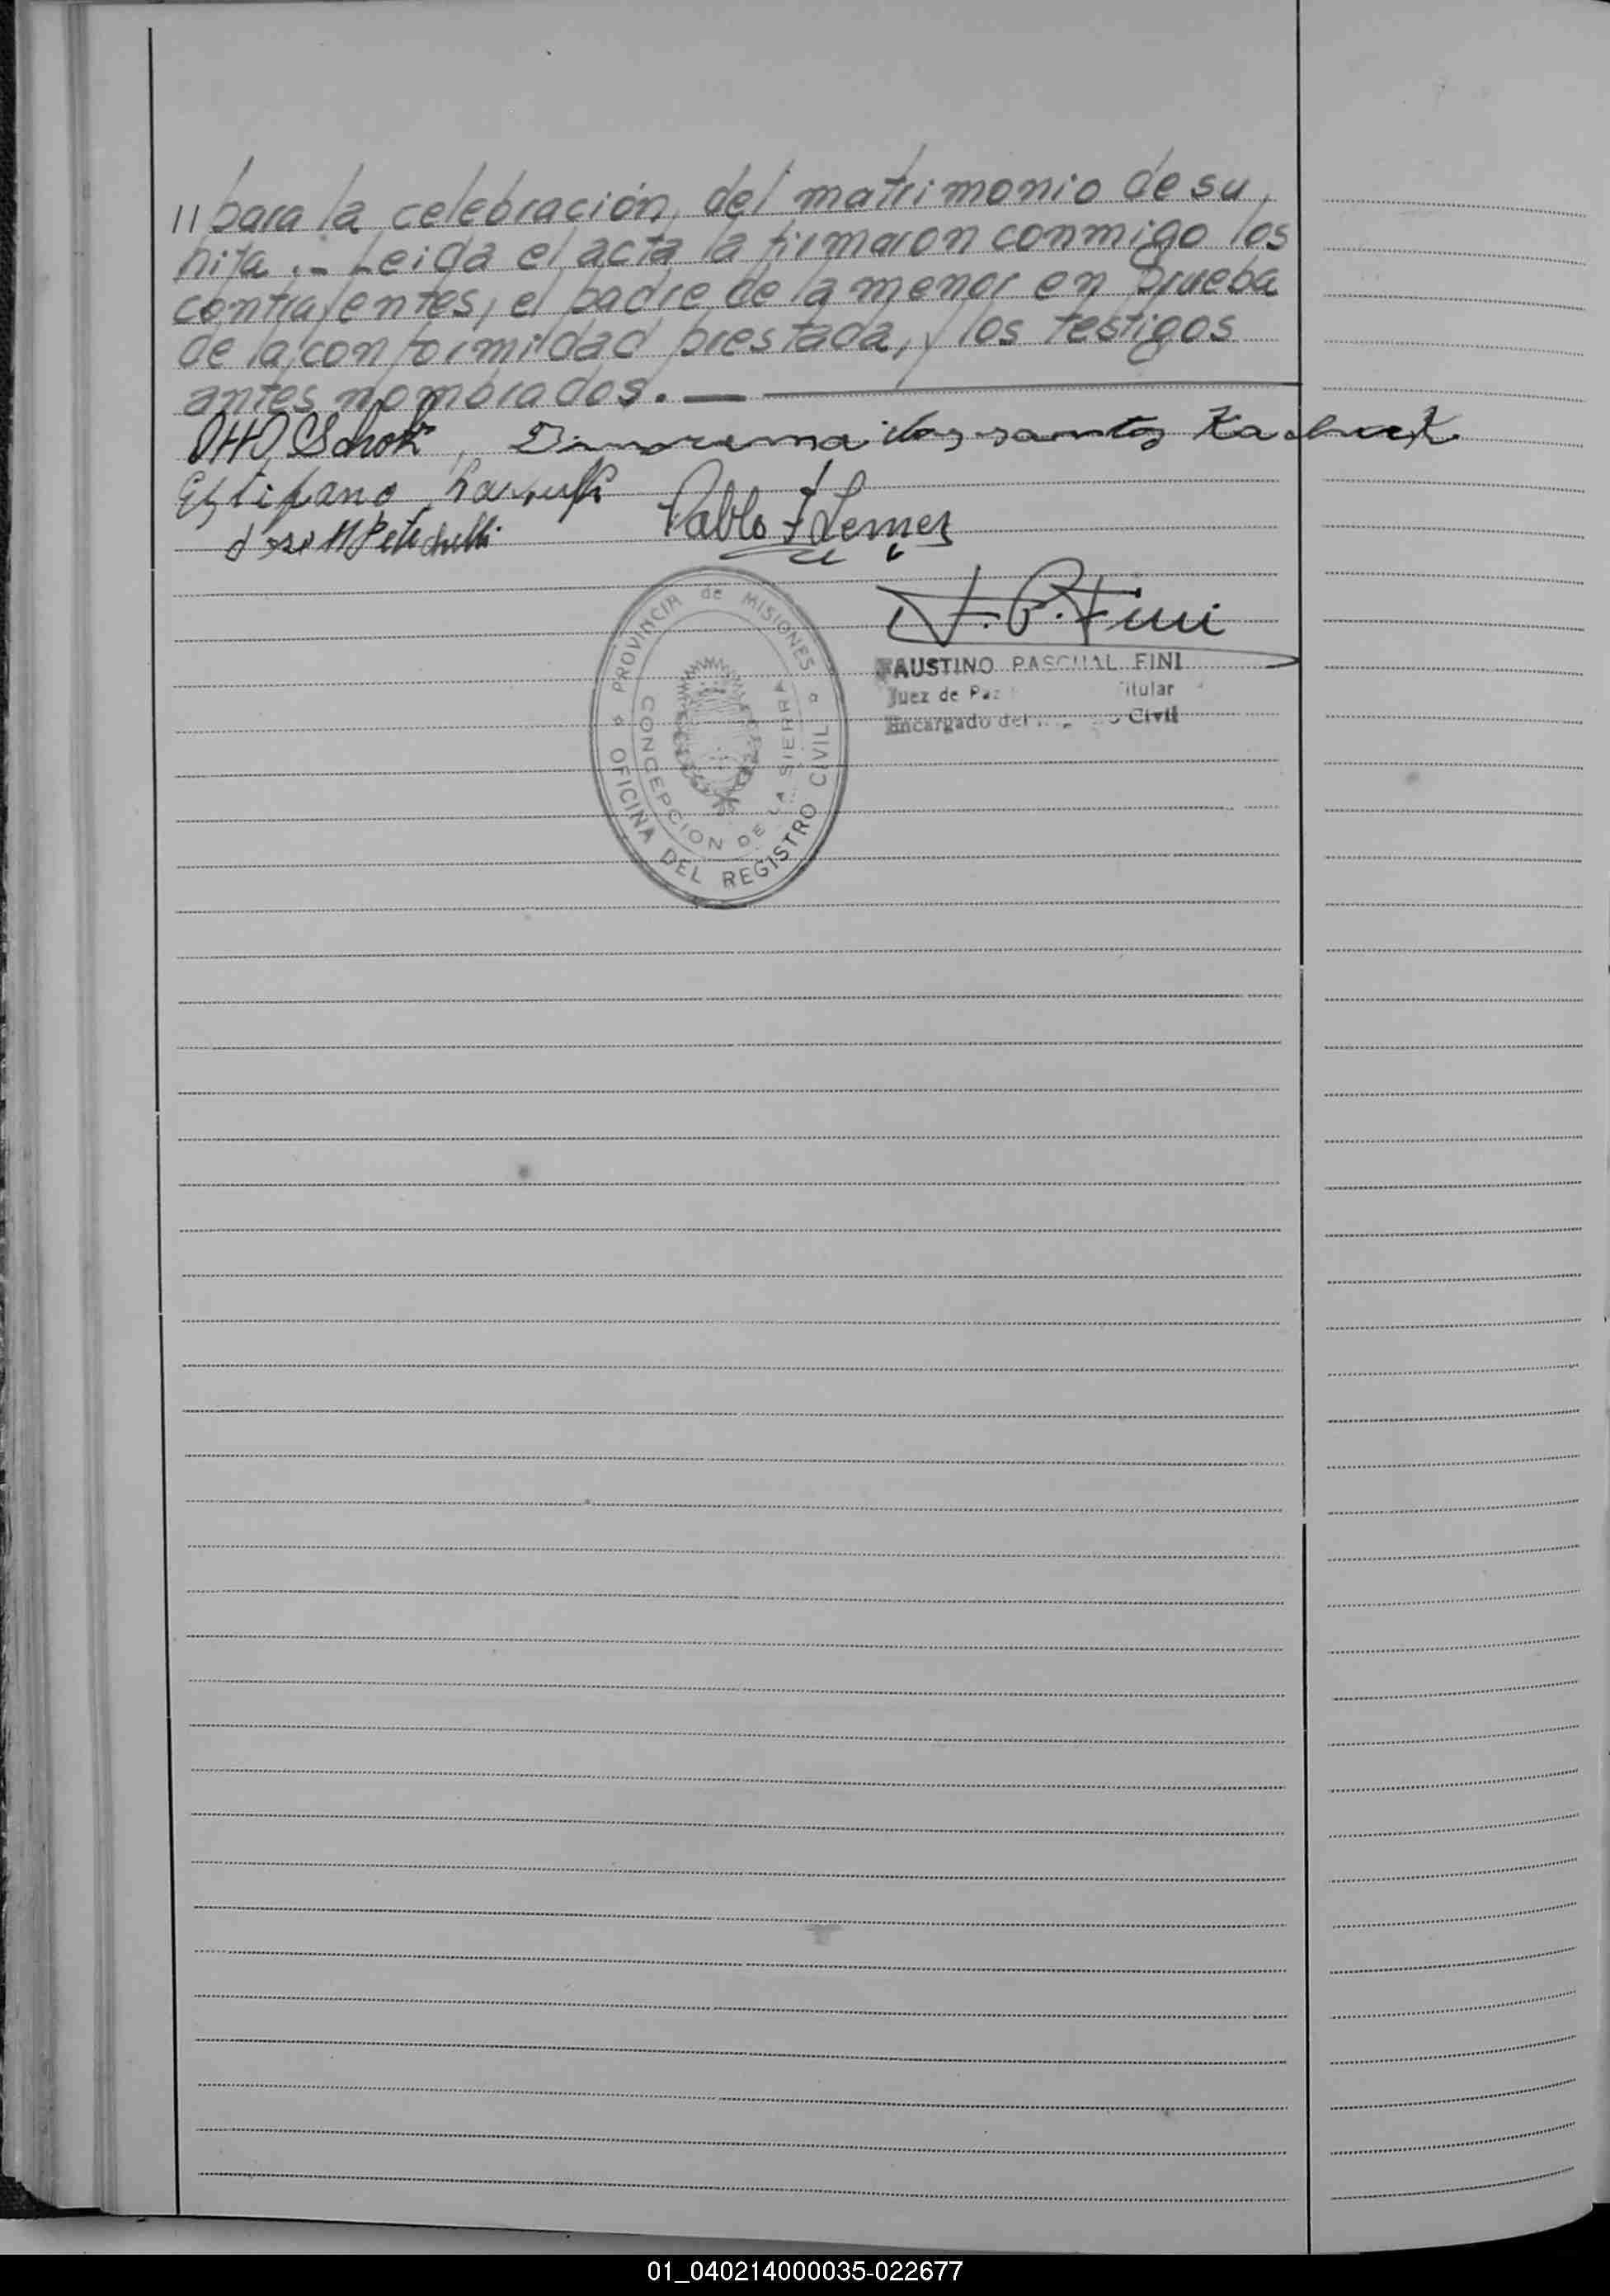 // para la celebración, del matrimonio de su
hija.- Leida el acta la firmaron conmigo los
contrayentes, el padre de la menor en prueba
de la conformidad prestada, y los testigos
antes nombrados. —
Otto Schok dos santos
Pablo F Lemes
F. P. Fini
PROVINCIA de MISIONES
OFICINA DEL REGISTRO CIVIL
CONCEPCION DE LA SIERRA
FAUSTINO PASCUAL FINI
Juez de Paz Titular
Encargado del Civil
01_040214000035-022677